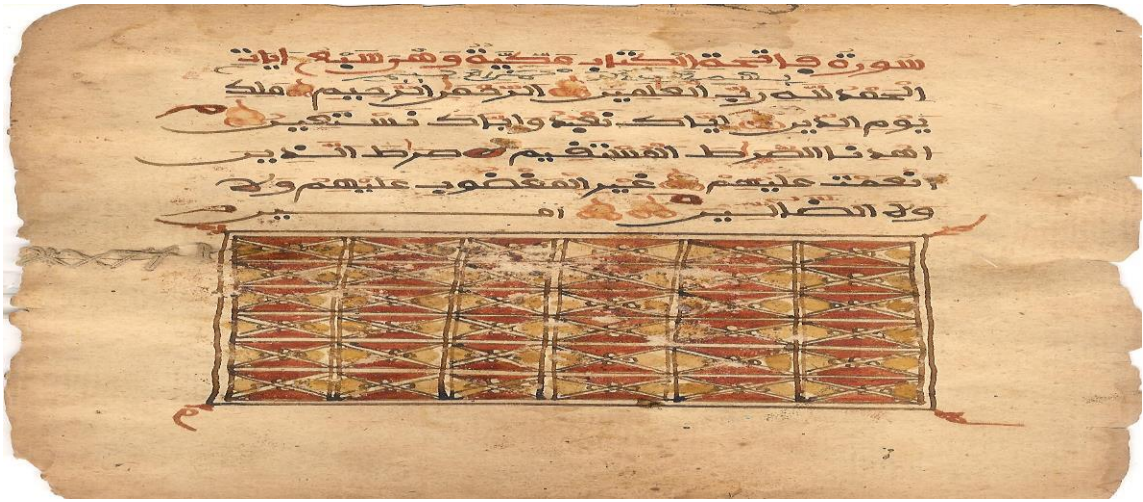 سورة فاتحة الكتاب مكية وهي سبع ايات
الحمد لله رب العلمين الرحمن الرحيم ملك
يوم الدين اياك نعبد واياك نستعين
اهدنا الصرط المستقيم صرط الذين
انعمت عليهم غير المغضوب عليهم ولا
ولا الضالين امين